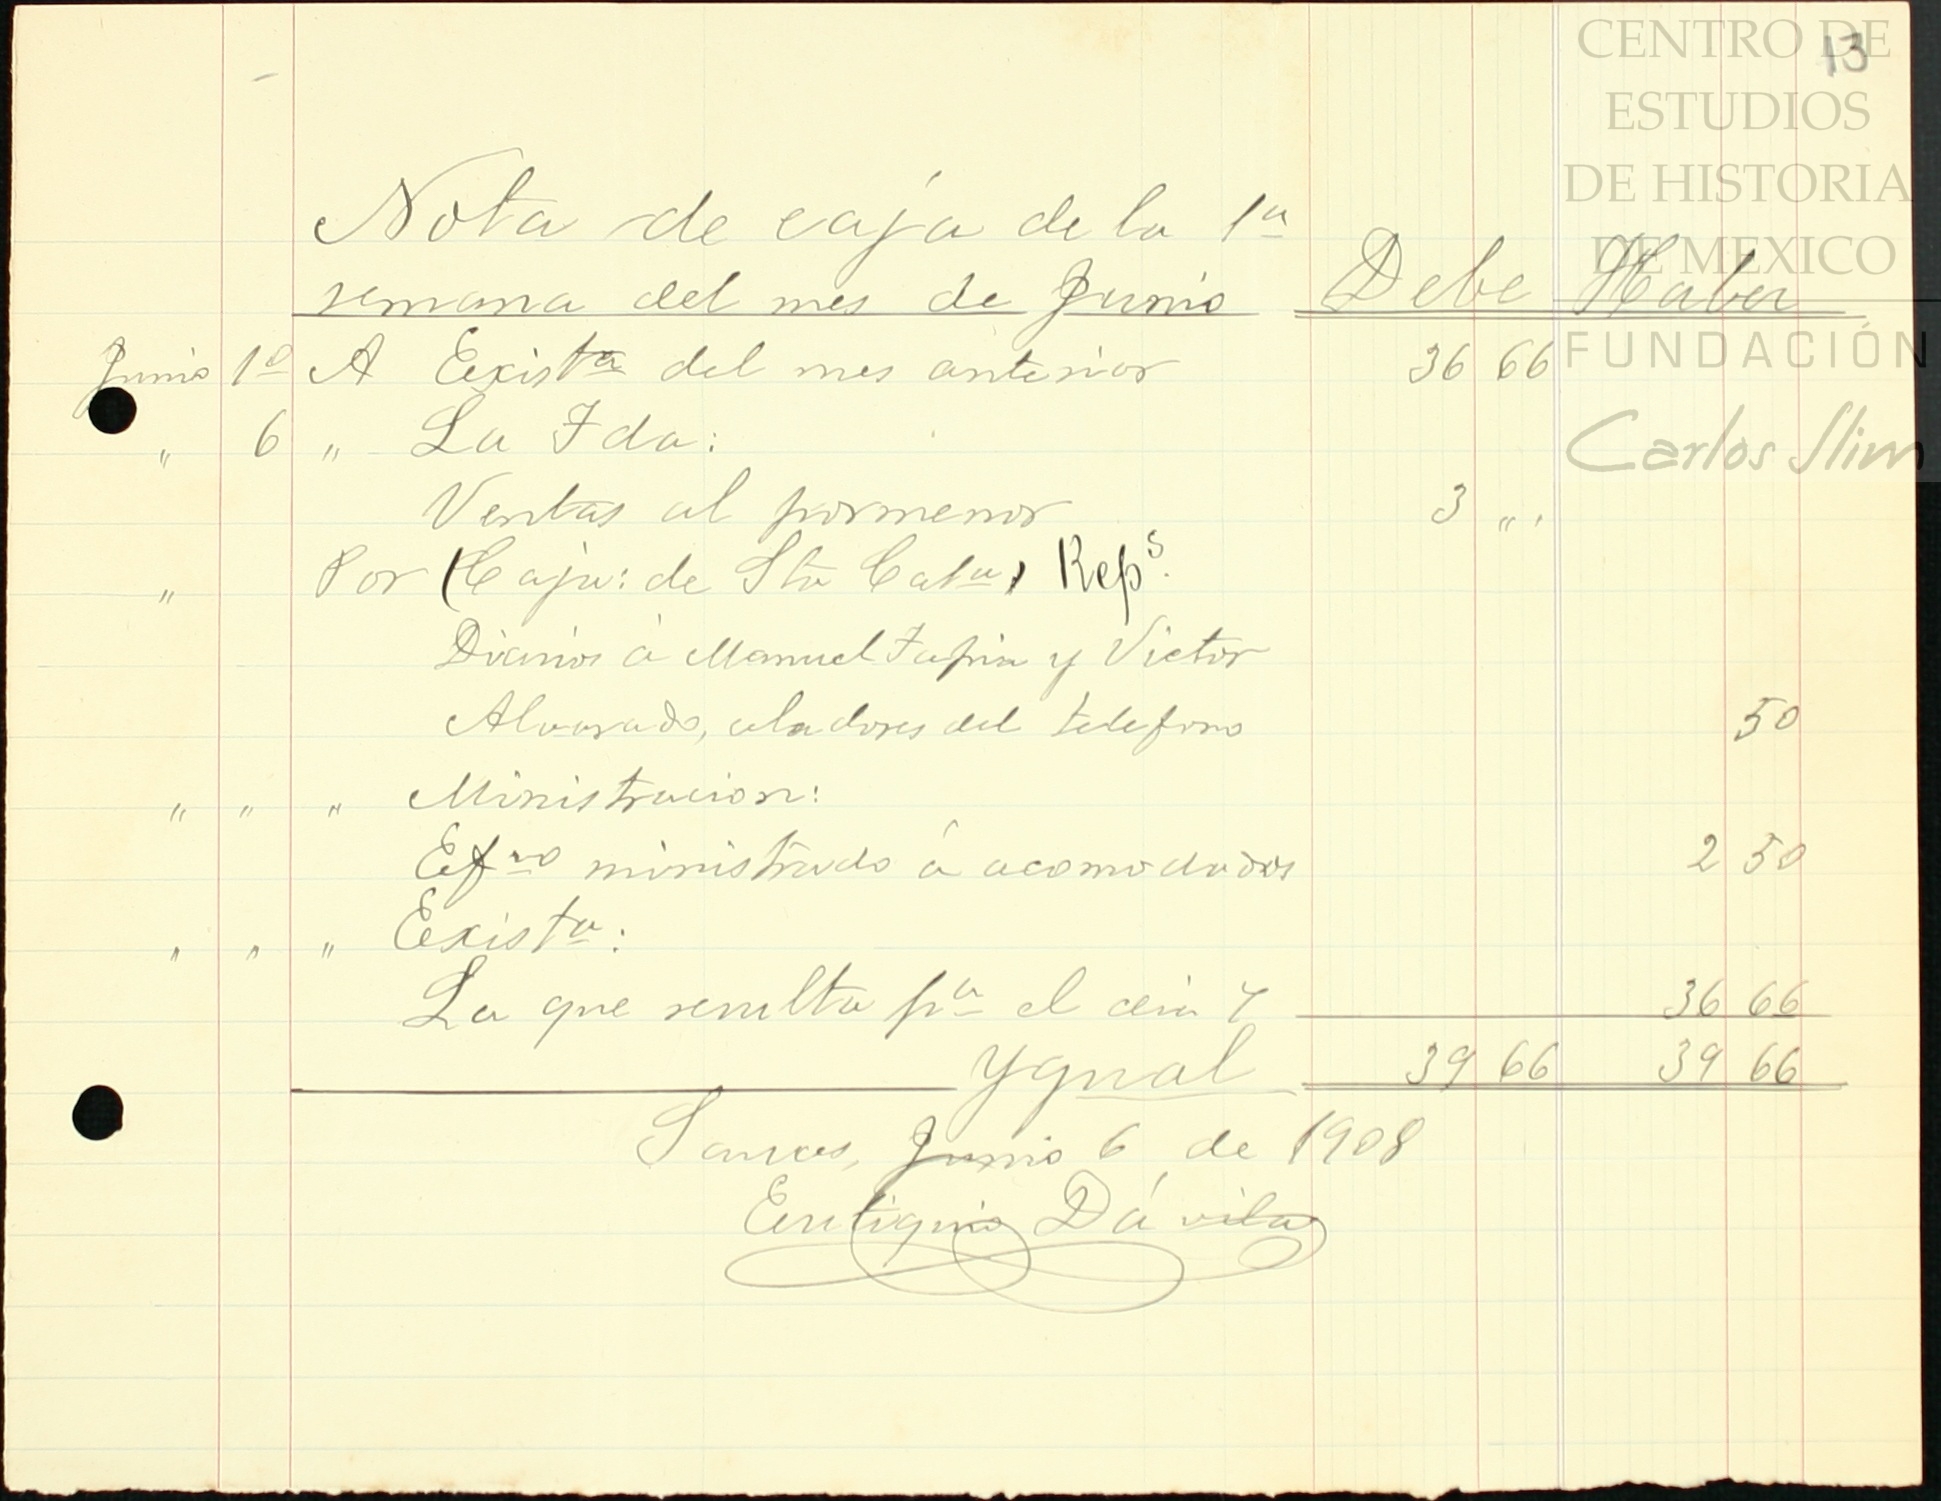 13
CENTRO DE
ESTUDIOS
DE HISTORIA
DE MEXICO
FUNDACIÓN
Carlos Slim
Nota de caja de la 1a
semana del mes de Junio Debe Haber
Junio 1o A Exista del mes anterior 36 66
" 6 " La Fda:
Ventas al pormenor 3 " "
" Por (Caja: de Sta Cata) Reps.
Diarios á Manuel Tapia y Victor
Alvarado, celadores del telefono 50
" " " Ministracion:
Efvo ministrado á acomodados 2 50
" " " Exista:
La que resulta pa el dia 7 36 66
Ygual 39 66 39 66
Sauces, Junio 6 de 1908
Eutiquio Dávila